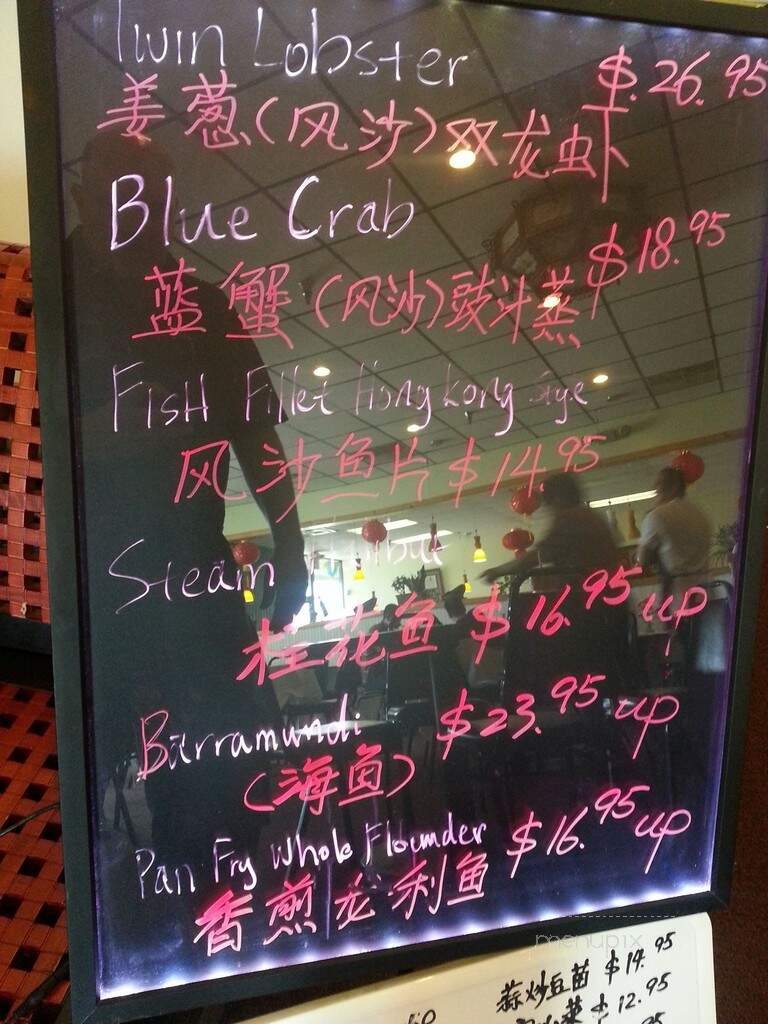 Twin Lobster
$26.95
姜葱(风沙)双龙虾
Blue Crab
$18.95
蓝蟹(风沙)豉汁蒸
Fish Fillet Hong Kong
风沙鱼片 $14.95
Steam
桂花鱼 $16.95 up
Barramundi $23.95 up
(海鱼)
Pan Fry Whole Flounder $16.95 up
香煎龙利鱼
menupix
蒜炒豆苗 $14.95
菜 $12.95